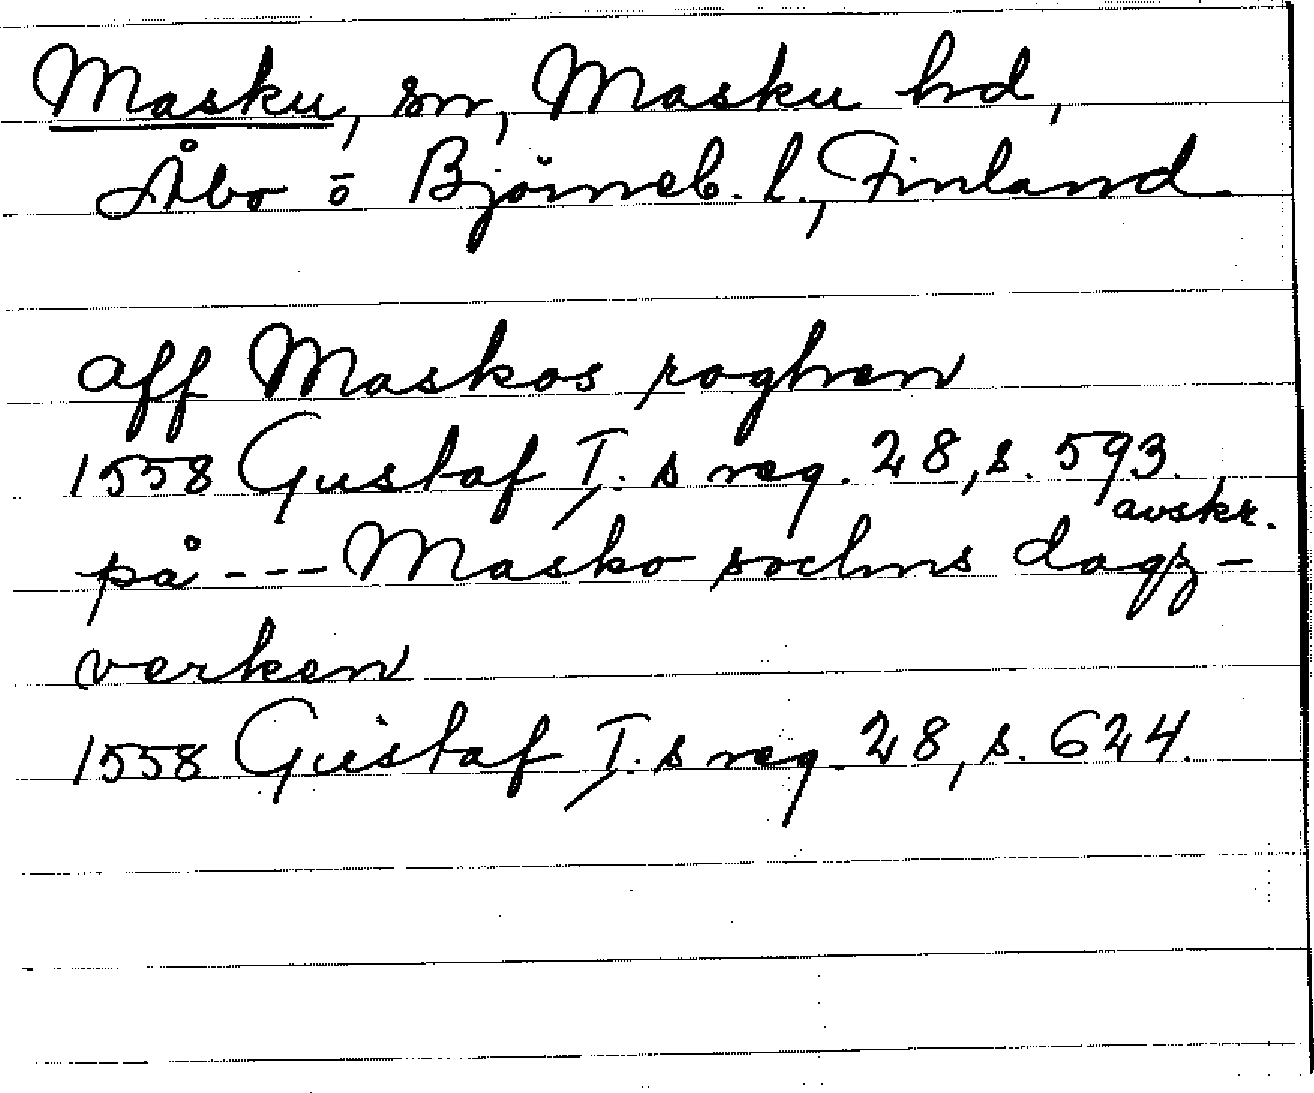 Masku, sn, Masku hd,
Åbo o Björneb. l., Finland
aff Maskos roghen
1558 Gustaf I.s reg. 28, s. 593.
avskr.
på --- Masko sochns dagz-
verken
1558 Gustaf I.s reg. 28, s. 624.